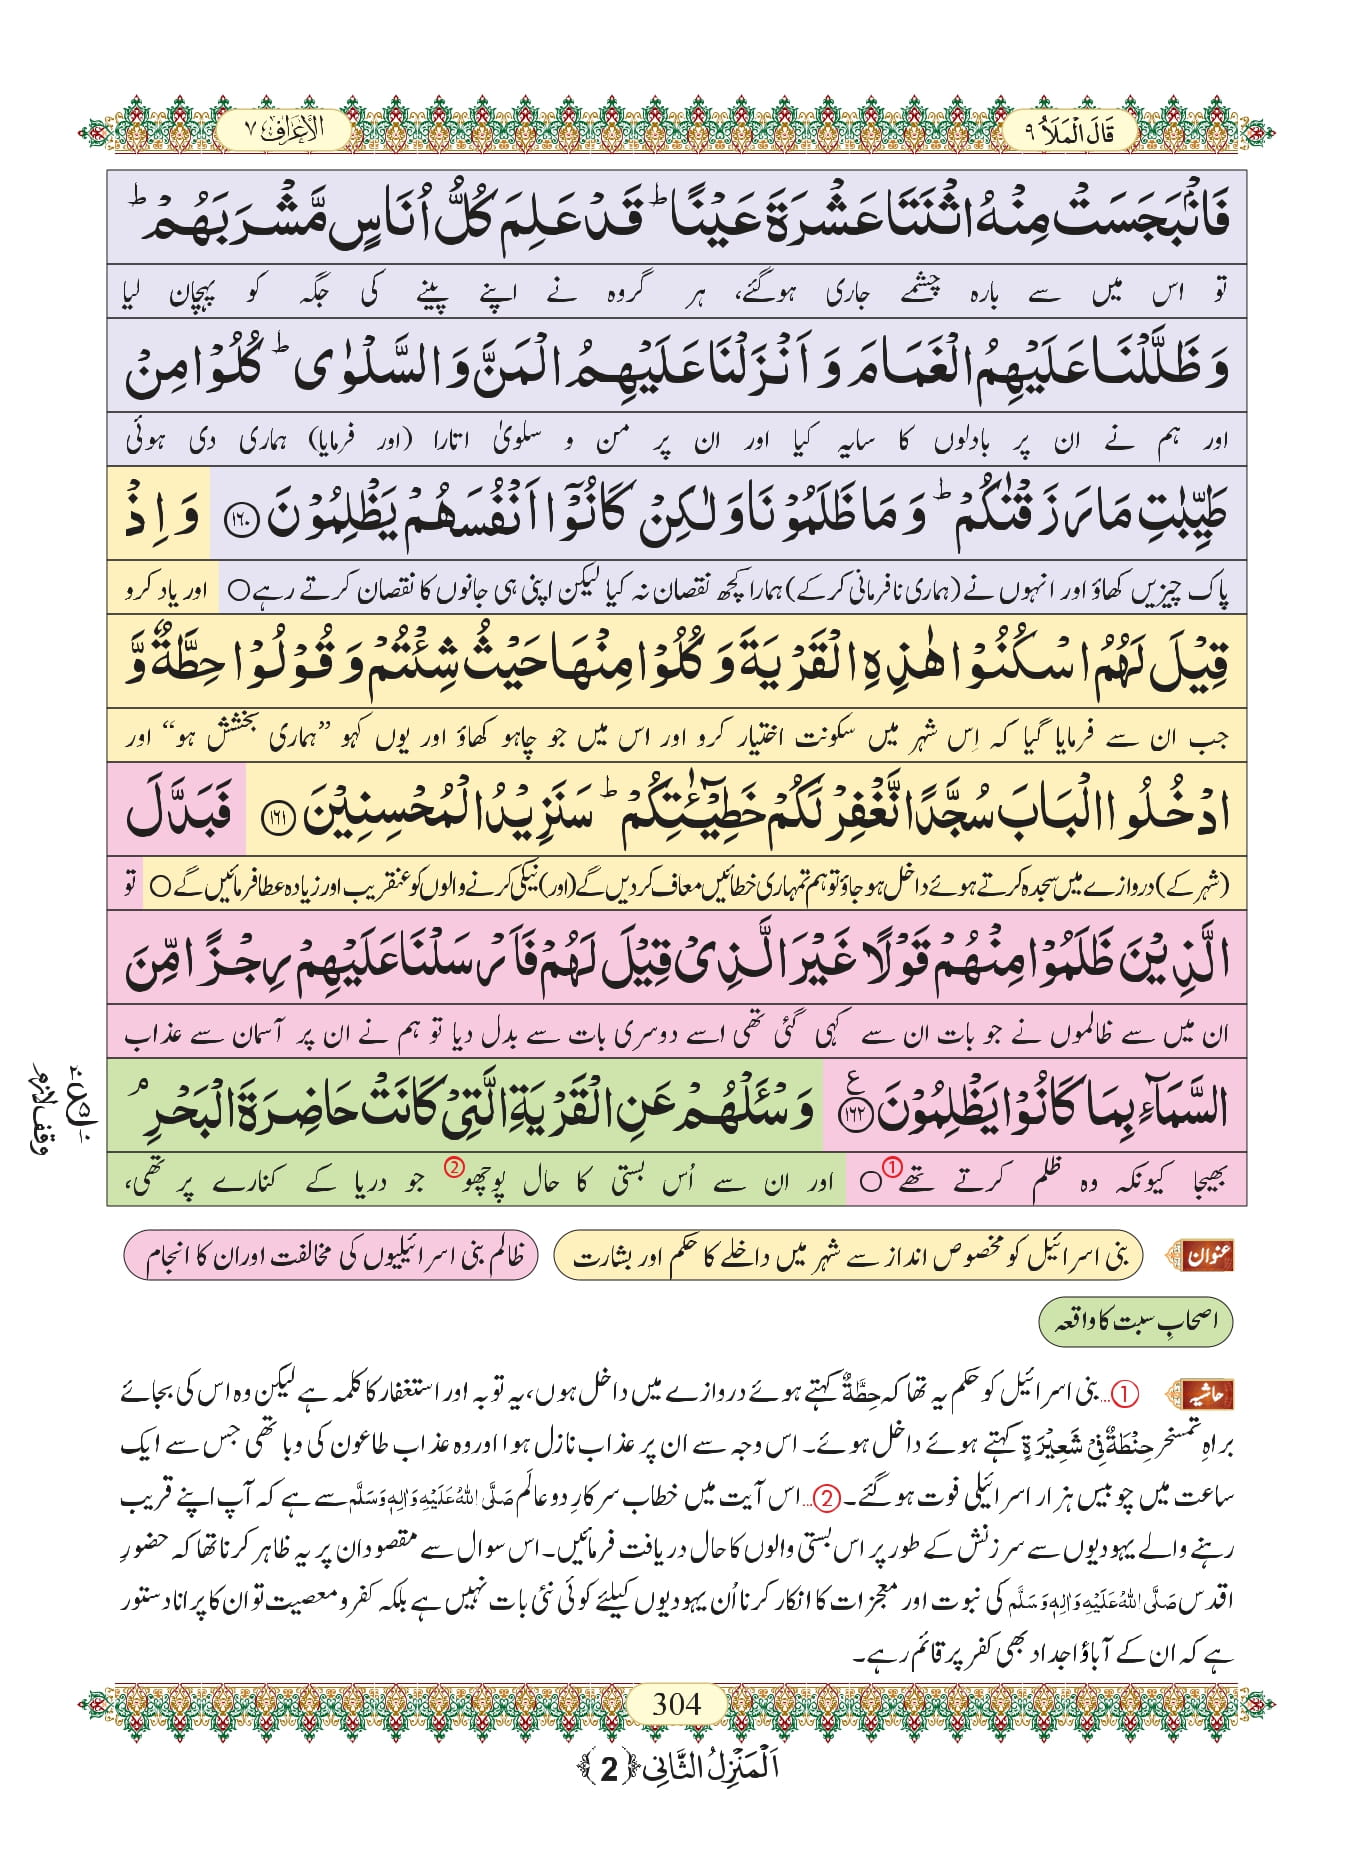 قَالَ الْمَلَاُ ۹
الْاَعْرَاف ۷
فَانْۢبَجَسَتْ مِنْهُ اثْنَتَا عَشْرَةَ عَیْنًا ؕ قَدْ عَلِمَ كُلُّ اُنَاسٍ مَّشْرَبَهُمْ ؕ
تو اس میں سے بارہ چشمے جاری ہوگئے، ہر گروہ نے اپنے پینے کی جگہ کو پہچان لیا
وَ ظَلَّلْنَا عَلَیْهِمُ الْغَمَامَ وَ اَنْزَلْنَا عَلَیْهِمُ الْمَنَّ وَ السَّلْوٰى ؕ كُلُوْا مِنْ
اور ہم نے ان پر بادلوں کا سایہ کیا اور ان پر من و سلویٰ اتارا (اور فرمایا) ہماری دی ہوئی
طَیِّبٰتِ مَا رَزَقْنٰكُمْ ؕ وَ مَا ظَلَمُوْنَا وَ لٰكِنْ كَانُوْۤا اَنْفُسَهُمْ یَظْلِمُوْنَ ﴿۱۶۰﴾ وَ اِذْ
پاک چیزیں کھاؤ اور انہوں نے (ہماری نافرمانی کرکے) ہمارا کچھ نقصان نہ کیا لیکن اپنی ہی جانوں کا نقصان کرتے رہے ○ اور یاد کرو
قِیْلَ لَهُمُ اسْكُنُوْا هٰذِهِ الْقَرْیَةَ وَ كُلُوْا مِنْهَا حَیْثُ شِئْتُمْ وَ قُوْلُوْا حِطَّةٌ وَّ
جب ان سے فرمایا گیا کہ اِس شہر میں سکونت اختیار کرو اور اس میں جو چاہو کھاؤ اور یوں کہو ”ہماری بخشش ہو“ اور
ادْخُلُوا الْبَابَ سُجَّدًا نَّغْفِرْ لَكُمْ خَطِیْٓـٰٔتِكُمْ ؕ سَنَزِیْدُ الْمُحْسِنِیْنَ ﴿۱۶۱﴾ فَبَدَّلَ
(شہر کے) دروازے میں سجدہ کرتے ہوئے داخل ہوجاؤ تو ہم تمہاری خطائیں معاف کردیں گے (اور) نیکی کرنے والوں کو عنقریب اور زیادہ عطا فرمائیں گے ○ تو
الَّذِیْنَ ظَلَمُوْا مِنْهُمْ قَوْلًا غَیْرَ الَّذِیْ قِیْلَ لَهُمْ فَاَرْسَلْنَا عَلَیْهِمْ رِجْزًا مِّنَ
ان میں سے ظالموں نے جو بات ان سے کہی گئی تھی اسے دوسری بات سے بدل دیا تو ہم نے ان پر آسمان سے عذاب
السَّمَآءِ بِمَا كَانُوْا یَظْلِمُوْنَ ﴿۱۶۲﴾ ع وَ سْـَٔلْهُمْ عَنِ الْقَرْیَةِ الَّتِیْ كَانَتْ حَاضِرَةَ الْبَحْرِ ۘ
وقف لازم
بھیجا کیونکہ وہ ظلم کرتے تھے① ○ اور ان سے اُس بستی کا حال پوچھو② جو دریا کے کنارے پر تھی،
عنوان بنی اسرائیل کو مخصوص انداز سے شہر میں داخلے کا حکم اور بشارت ظالم بنی اسرائیلیوں کی مخالفت اور ان کا انجام
اصحابِ سبت کا واقعہ
حاشیہ ①... بنی اسرائیل کو حکم یہ تھا کہ حِطَّةٌ کہتے ہوئے دروازے میں داخل ہوں، یہ توبہ اور استغفار کا کلمہ ہے لیکن وہ اس کی بجائے
براہِ تمسخر حِنْطَةٌ فِیْ شَعِیْرَةٍ کہتے ہوئے داخل ہوئے۔ اس وجہ سے ان پر عذاب نازل ہوا اور وہ عذاب طاعون کی وبا تھی جس سے ایک
ساعت میں چوبیس ہزار اسرائیلی فوت ہوگئے۔ ②... اس آیت میں خطاب سرکارِ دو عالَم صَلَّی اللہُ عَلَیْہِ وَاٰلِہٖ وَسَلَّم سے ہے کہ آپ اپنے قریب
رہنے والے یہودیوں سے سرزنش کے طور پر اس بستی والوں کا حال دریافت فرمائیں۔ اس سوال سے مقصود ان پر یہ ظاہر کرنا تھا کہ حضورِ
اقدس صَلَّی اللہُ عَلَیْہِ وَاٰلِہٖ وَسَلَّم کی نبوت اور معجزات کا انکار کرنا اُن یہودیوں کیلئے کوئی نئی بات نہیں ہے بلکہ کفر و معصیت تو ان کا پرانا دستور
ہے کہ ان کے آباؤ اجداد بھی کفر پر قائم رہے۔
304
اَلْمَنْزِلُ الثَّانِی ﴿2﴾